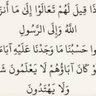 ذَا قِيلَ لَهُمْ تَعَالَوْا إِلَىٰ مَا أَنزَ
اللَّهُ وَإِلَى الرَّسُولِ
وا حَسْبُنَا مَا وَجَدْنَا عَلَيْهِ آبَاءَ
وْ كَانَ آبَاؤُهُمْ لَا يَعْلَمُونَ شَ
وَلَا يَهْتَدُونَ